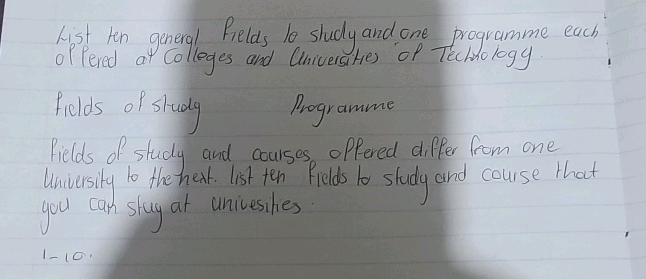 List ten general fields to study and one programme each
offered at Colleges and Universities of Technology.
fields of study Programme
fields of study and courses offered differ from one
University to the next. list ten fields to study and course that
you can stuy at univesities.
1-10.